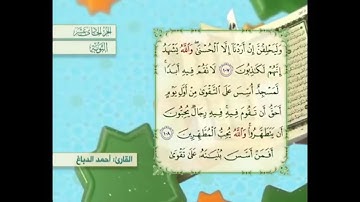 الجزء الحادي عشر
التوبة
وَلَيَحْلِفُنَّ إِنْ أَرَدْنَا إِلَّا الْحُسْنَىٰ وَاللَّهُ يَشْهَدُ
إِنَّهُمْ لَكَاذِبُونَ ١٠٧ لَا تَقُمْ فِيهِ أَبَدًا
لَّمَسْجِدٌ أُسِّسَ عَلَى التَّقْوَىٰ مِنْ أَوَّلِ يَوْمٍ
أَحَقُّ أَن تَقُومَ فِيهِ فِيهِ رِجَالٌ يُحِبُّونَ
أَن يَتَطَهَّرُوا وَاللَّهُ يُحِبُّ الْمُطَّهِّرِينَ ١٠٨
أَفَمَنْ أَسَّسَ بُنْيَانَهُ عَلَىٰ تَقْوَىٰ
القارئ: أحمد الدباغ